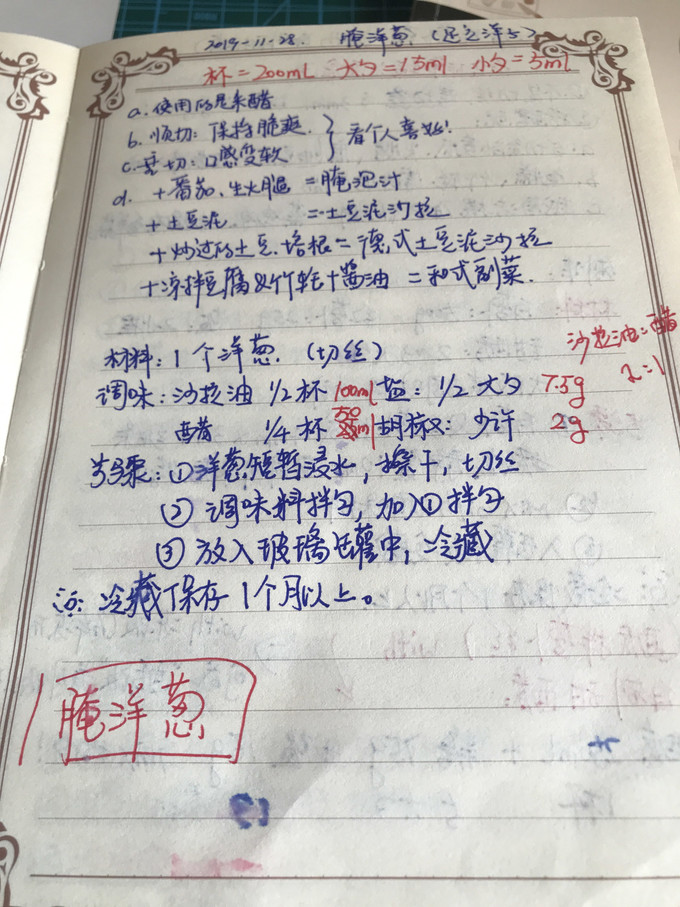 2019-11-28. 腌洋葱.
杯=200ml 大勺=15ml 小勺=5ml
a. 使用的是米醋
b. 顺切: 保持脆爽.
c. 切: 口感变软 } 看个人喜好!
d. +番茄、生火腿 =腌泡汁
+土豆泥 =土豆泥沙拉
+炒过的土豆、培根=德式土豆泥沙拉
+凉拌豆腐&竹轮+酱油 =和式副菜.
沙拉油:醋
2=1
材料: 1个洋葱. (切丝)
调味: 沙拉油 1/2杯 100ml 盐: 1/2大勺 7.5g
醋 1/4杯 50ml 胡椒: 少许 2g
步骤: ①洋葱短暂浸水, 擦干, 切丝
② 调味料拌匀, 加入① 拌匀
③ 放入玻璃罐中, 冷藏
注: 冷藏保存1个月以上。
腌洋葱